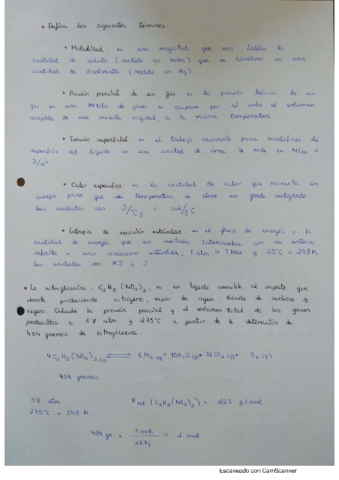 • Defina los siguientes términos:
• Molalidad es una magnitud que nos indica la
cantidad de soluto (medido en moles) que se disuelve en una
cantidad de disolvente (medida en Kg)
• Presión parcial de un gas: es la presión teórica de un
gas en una mezcla de gases si ocupase por sí solo el volumen
completo de una mezcla original, a la misma temperatura
• Tensión superficial: es el trabajo necesario para modificar la
superficie del líquido en una unidad de área. Se mide en N/m o
J/m²
• Calor específico es la cantidad de calor que necesita un
cuerpo para que su temperatura se eleve un grado centígrado
Sus unidades son
• Entalpía de reacción estándar: es el flujo de energía o la
cantidad de energía que un sistema intercambia con su entorno
referido a unas condiciones estándares, 1 atm = 1 bar y 25°C = 298 K
Sus unidades son KJ o J
• La nitroglicerina, C₃H₅(NO₃)₃, es un líquido sensible al impacto que
detona produciendo nitrógeno, vapor de agua, dióxido de carbono y
oxígeno. Calcule la presión parcial y el volumen total de los gases
producidos a 58 atm y 275°C a partir de la detonación de
454 gramos de nitroglicerina.
4 C₃H₅(NO₃)₃ (l) ⇌ 6 N₂ (g) + 10 H₂O (g) + 12 CO₂ (g) + O₂ (g)
454 gramos
58 atm
275°C = 548 K
(C₃H₅(NO₃)₃) = 227 g/mol
454 gr × 1 mol / 227 g = 2 mol
Escaneado con CamScanner